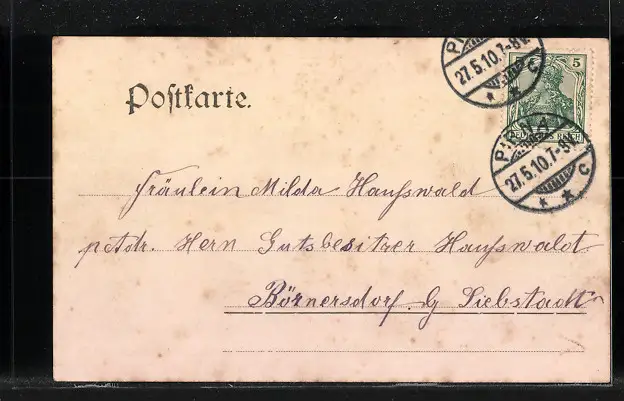 PIRNA
27.5.10.7-8V.
* * C
5
DEUTSCHES REICH
PIRNA
27.5.10.7-8V.
* * C
Postkarte.
Fräulein Milda Haufswald
p. Adr. Hern Gutsbesitzer Haufswaldt
Börnersdorf. b/ Liebstadt